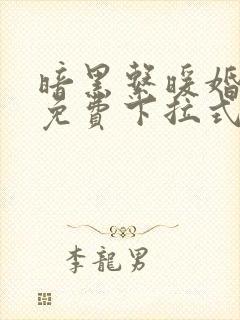 暗黑系暖婚
免費下拉式
李龍男